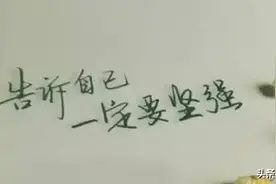 告诉自己
一定要坚强
头条